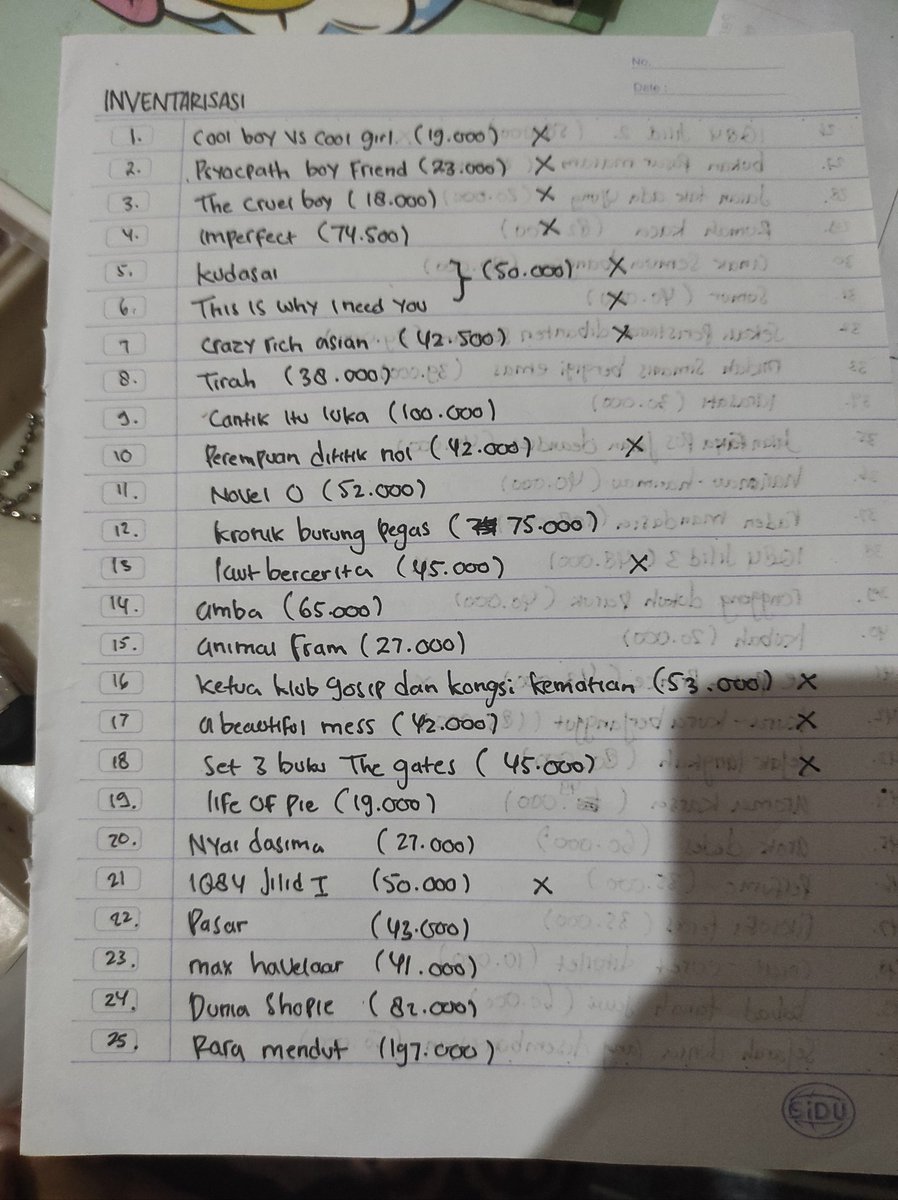 No.
Date :
INVENTARISASI
1. Cool boy vs Cool girl (19.000) X
2. Psyocpath boy Friend (23.000) X
3. The cruel boy (18.000) X
4. imperfect (74.500) X
5. kudasai } (50.000) X
6. This is why I need You X
7 Crazy rich asian (42.500) X
8. Tirah (38.000)
9. Cantik itu luka (100.000)
10 Perempuan dititik nol (42.000) X
11. Novel O (52.000)
12. kronik burung Pegas (75.000)
13 laut bercerita (45.000) X
14. amba (65.000)
15. animal Fram (27.000)
16 ketua klub gosip dan kongsi kematian (53.000) X
17 a beautiful mess (42.000) X
18 Set 3 buku The gates (45.000) X
19. life OF Pie (19.000)
20. Nyai dasima (27.000)
21 1Q84 Jilid I (50.000) X
22. Pasar (43.500)
23. max havelaar (41.000)
24. Dunia Shopie (82.000)
25. Rara mendut (197.000)
SiDU